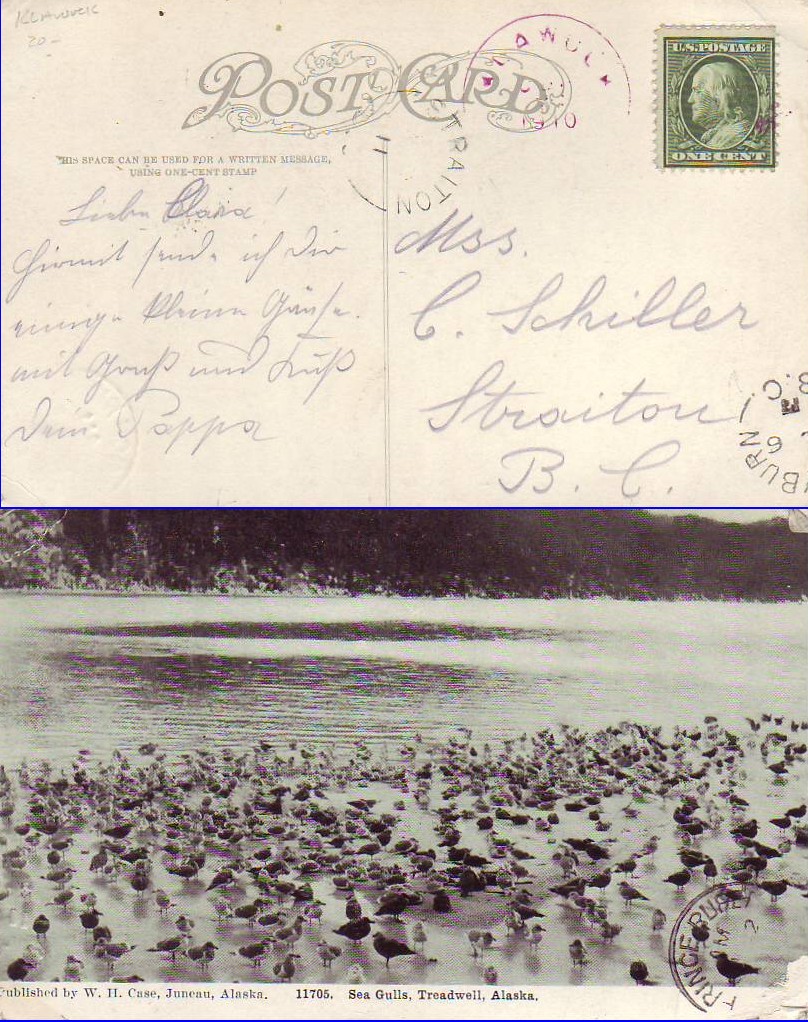 Klawock
20-
POST CARD
KLAWOCK
1910
U.S. POSTAGE
ONE CENT
THIS SPACE CAN BE USED FOR A WRITTEN MESSAGE,
USING ONE-CENT STAMP
STRAITON
11
Liebe Clara!
Hiermit sende ich Dir
einige kleine Gänse.
mit Gruß und Kuß
Dein Pappa
Mss.
C. Schiller
Straiton
B. C.
BURN
6
B.C.
PRINCE RUPE
2
Published by W. H. Case, Juneau, Alaska. 11705. Sea Gulls, Treadwell, Alaska.